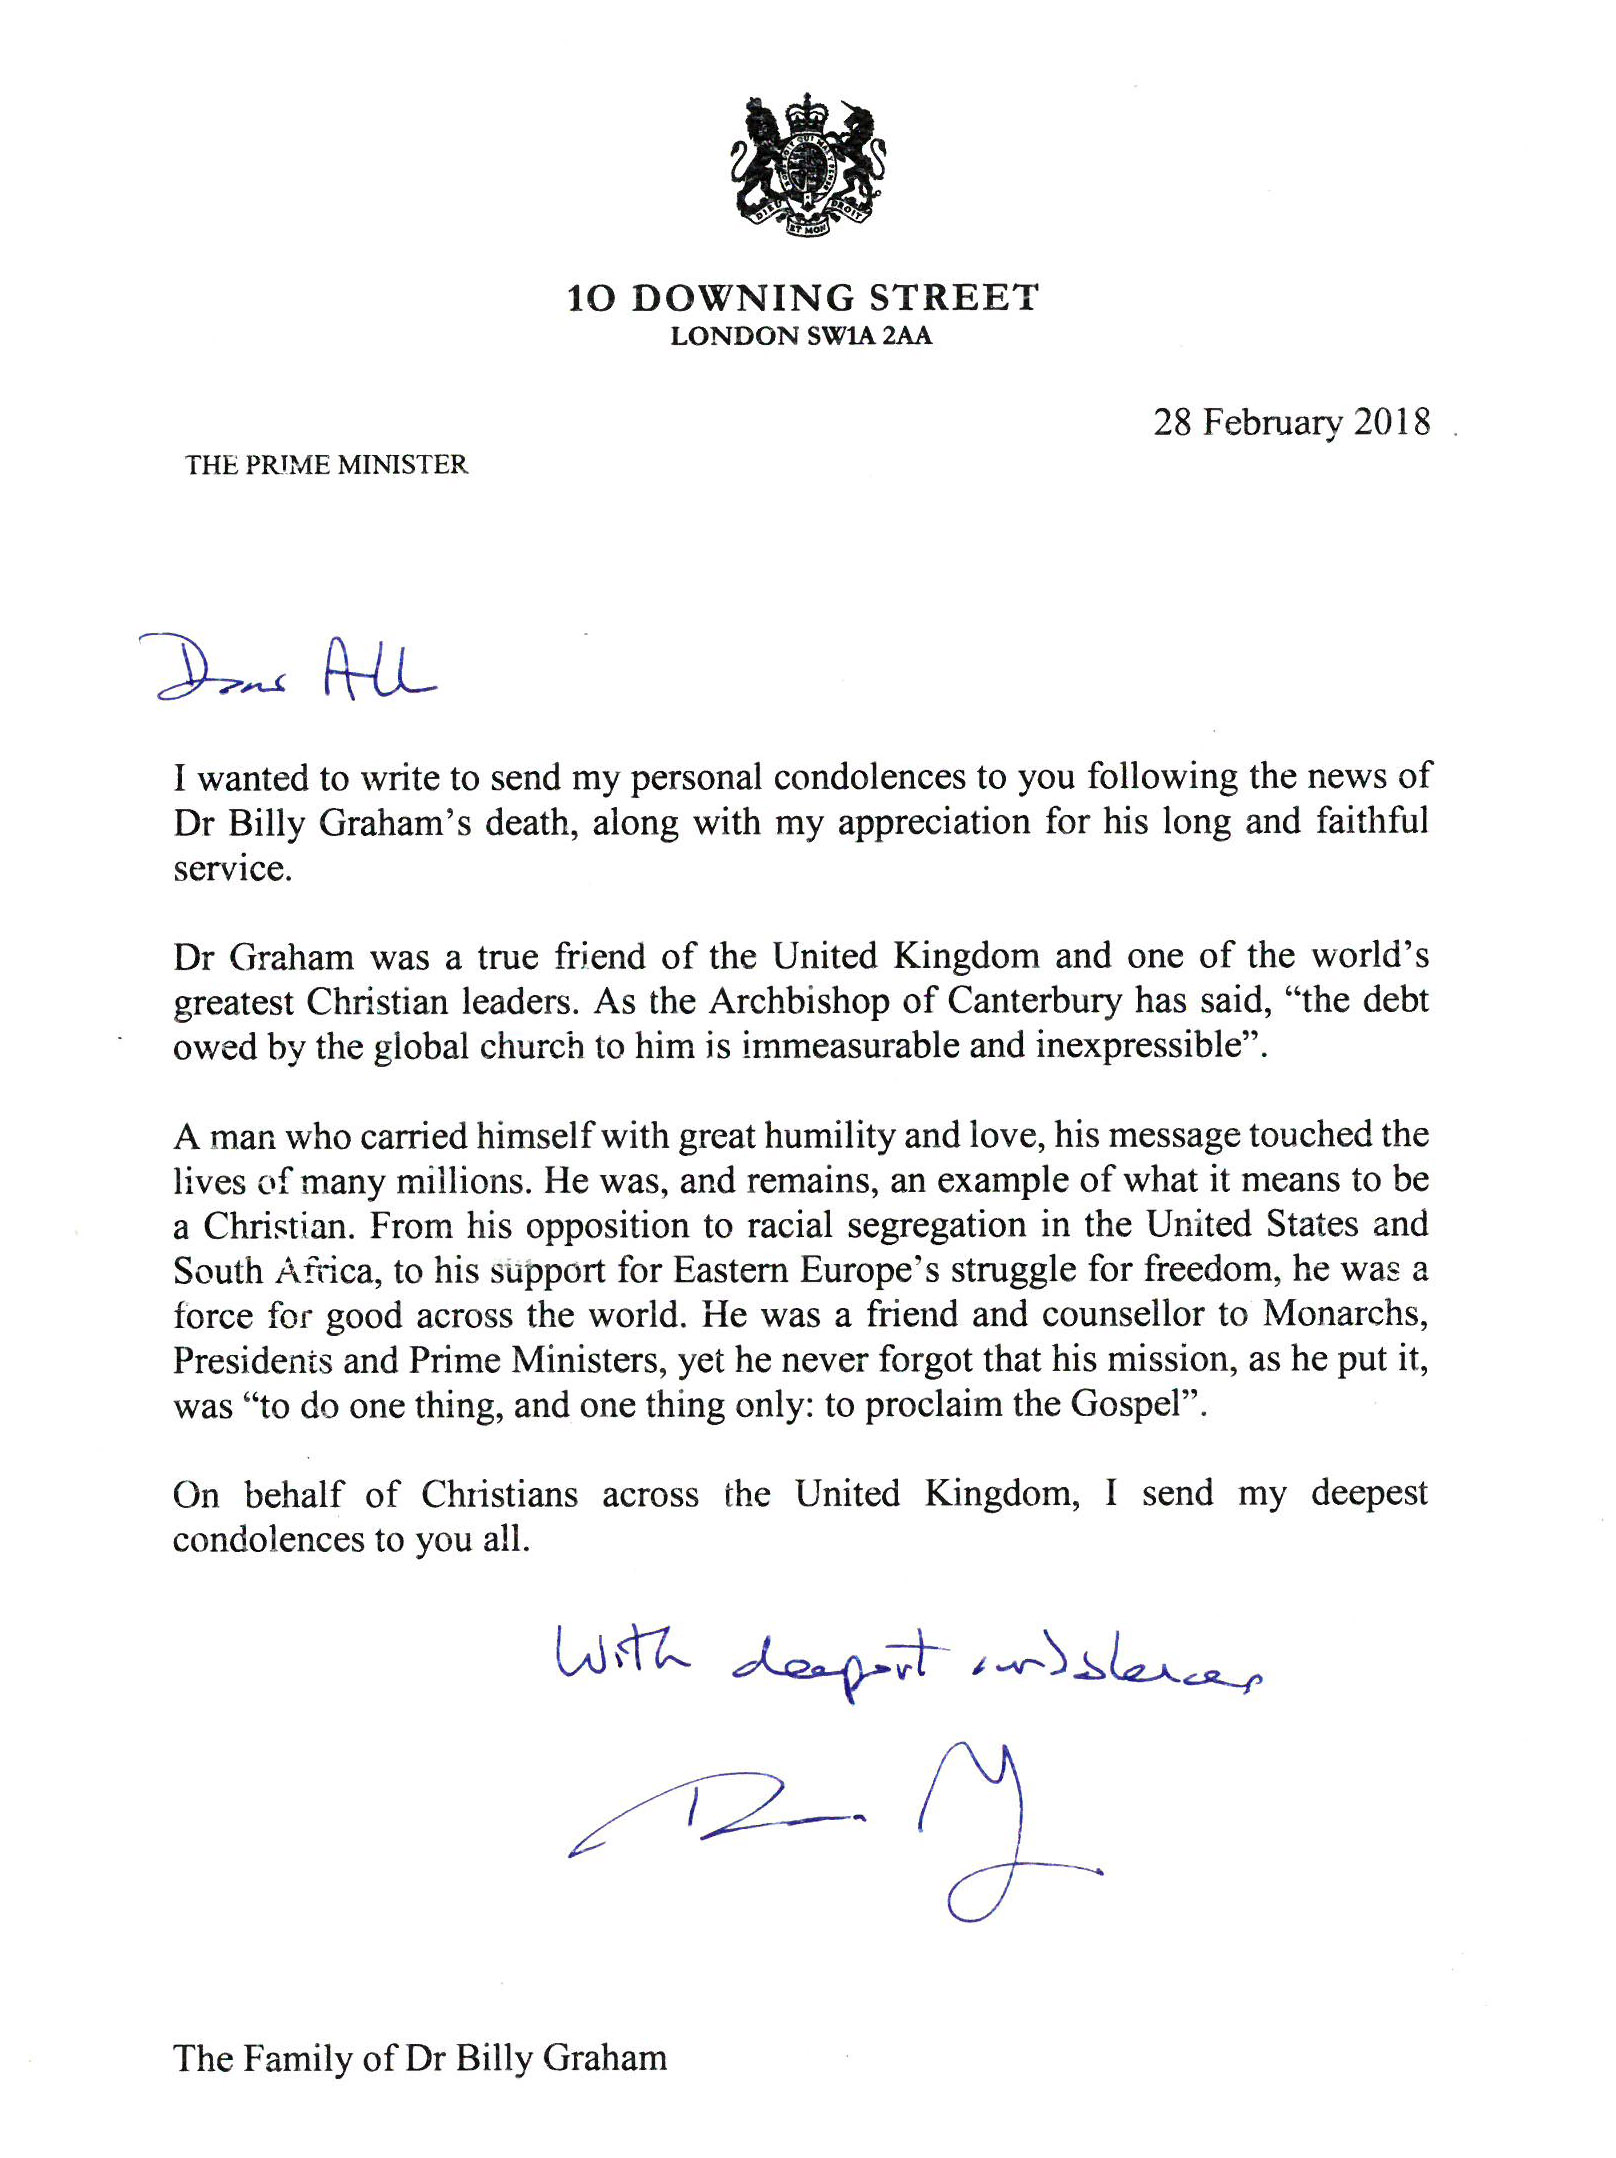 HONI SOIT QUI MAL Y PENSE
DIEU ET MON DROIT
10 DOWNING STREET
LONDON SW1A 2AA
28 February 2018
THE PRIME MINISTER
Dear All
I wanted to write to send my personal condolences to you following the news of
Dr Billy Graham’s death, along with my appreciation for his long and faithful
service.
Dr Graham was a true friend of the United Kingdom and one of the world’s
greatest Christian leaders. As the Archbishop of Canterbury has said, “the debt
owed by the global church to him is immeasurable and inexpressible”.
A man who carried himself with great humility and love, his message touched the
lives of many millions. He was, and remains, an example of what it means to be
a Christian. From his opposition to racial segregation in the United States and
South Africa, to his support for Eastern Europe’s struggle for freedom, he was a
force for good across the world. He was a friend and counsellor to Monarchs,
Presidents and Prime Ministers, yet he never forgot that his mission, as he put it,
was “to do one thing, and one thing only: to proclaim the Gospel”.
On behalf of Christians across the United Kingdom, I send my deepest
condolences to you all.
With deepest condolences
The Family of Dr Billy Graham